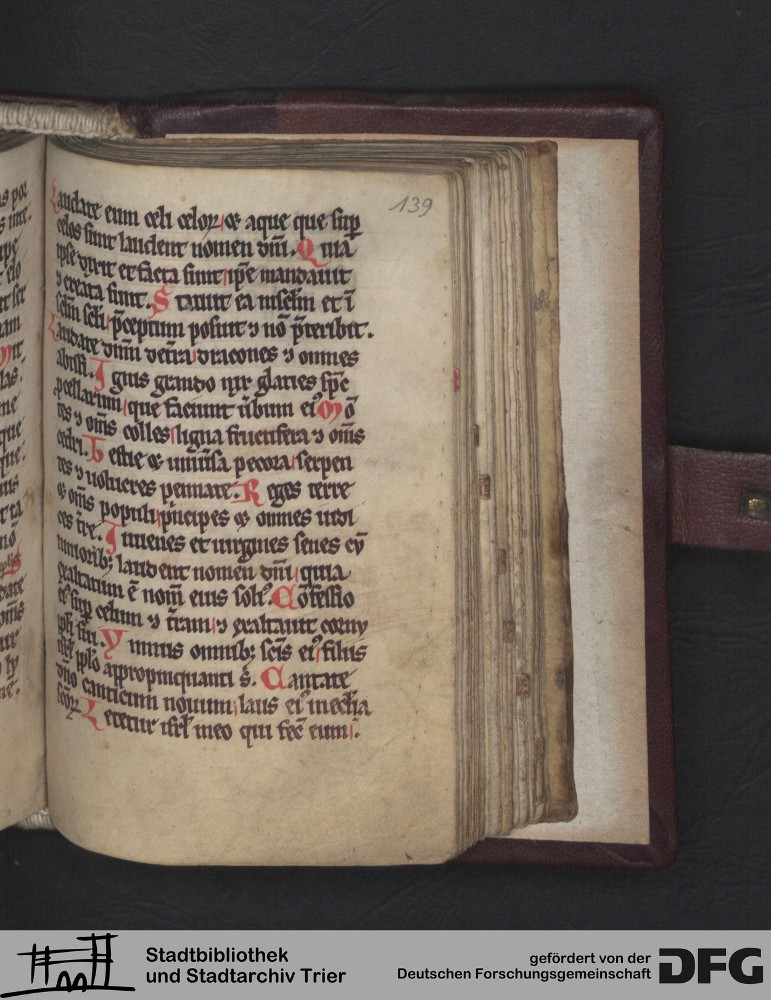 139
Laudate eum celi celoꝝ ⁊ aque que sup̄
celos sunt laudent nomen dn̄i. Quia
ipse dixit et facta sunt ip̄e mandauit
⁊ creata sunt. Statuit ea in sc̄lm et ī
sc̄lm sc̄li p̄ceptum posuit ⁊ nō p̄teribit.
Laudate dn̄m de t̄ra dracones ⁊ omnes
abissi. Ignis grando nix glacies sp̄c
p̄cellarum que faciunt ūbum eiꝰ Mō
tes ⁊ om̄s colles ligna fructifera ⁊ om̄s
cedri. Bestie ⁊ uniūsa pecora serpen
tes ⁊ uolucres pennate. Reges terre
⁊ om̄s populi p̄ncipes ⁊ omnes iudi
ces t̄re. Iuuenes et uirgines senes cū
iuniorib; laudent nomen dn̄i quia
exaltatum ē nom̄ eius soliꝰ. Cōfessio
eiꝰ sup̄ celum ⁊ t̄ram ⁊ exaltauit cornu
ppl̄i sui. Ymnus omnib; sc̄is eiꝰ filiis
isrl̄ pplo appropinquanti s. Cantate
dn̄o canticum nouum laus eiꝰ in eccl̄ia
sc̄oꝝ. Letetur isrl̄ in eo qui fec̄ eum.
Stadtbibliothek
und Stadtarchiv Trier
gefördert von der
Deutschen Forschungsgemeinschaft
DFG